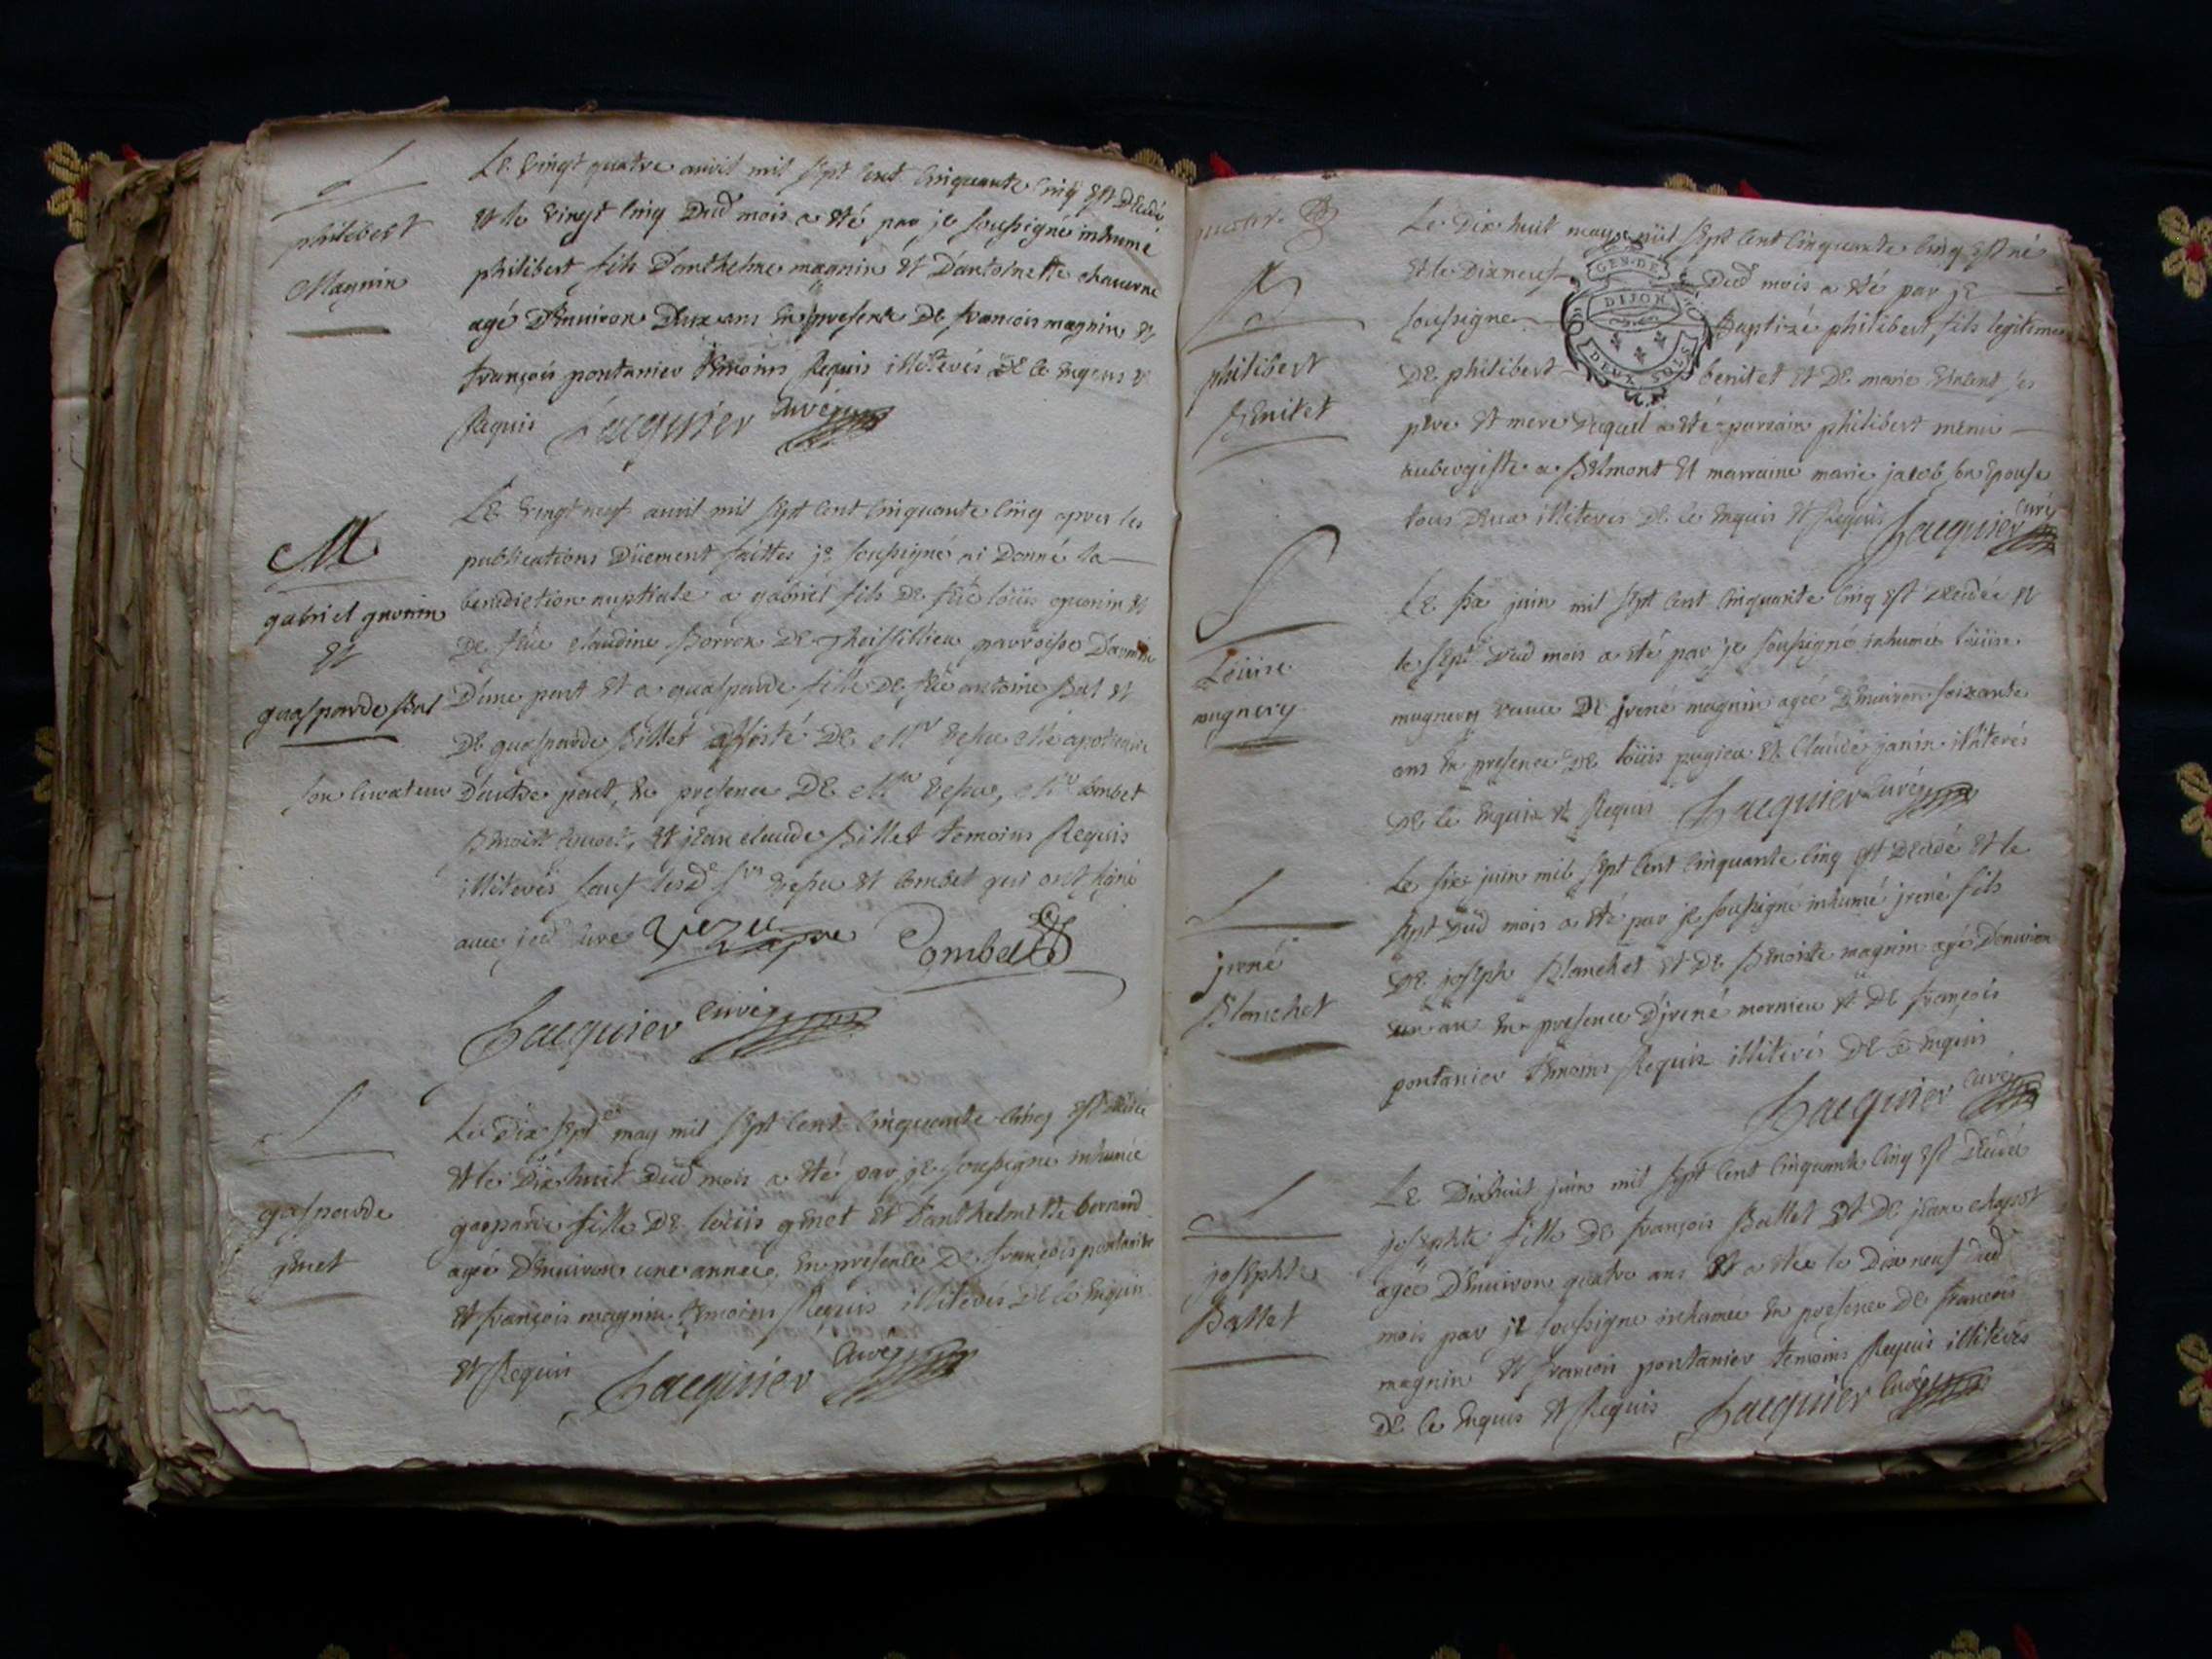 S
philibert
Magnin
Le vingt quatre avril mil sept cent cinquante cinq est decedé
et le vingt cinq dud mois a eté par je soussigné inhumé
philibert fils d'anthelme magnin et d'antoinette chaverne
agé d'environ deux ans en presence de francois magnin et
francois pontanier temoins requis illiterés de ce enquis et
requis Jacquier curé
M
gabriel guonin
et
guasparde Bal
Le vingt neuf avril mil sept cent cinquante cinq apres les
publications düement faittes je soussigné ai donné la
benediction nuptiale a gabriel fils de feu loüis guonin et
de feüe claudine Borron de parroisse
d'une part et a guasparde fille de feu antoine Bal et
de guasparde Billet assisté de Mr
son curateur d'autre part, en presence de Mr Mr Combet
Benoit et jean claude Billet temoins requis
illiterés sauf lesd Srs et Combet qui ont signé
avec jed curé Combet
Jacquier curé
S
gasparde
genet
Le dix sept may mil sept cent cinquante cinq est decedée
et le dix huit dud mois a eté par je soussigné inhumée
gasparde fille de loüis genet et d'anthelmette bernard
agée d'environ une année en presence de francois pontanier
et françois magnin temoins requis illiterés de ce enquis
et requis Jacquier curé
B
philibert
Benitet
Le dix huit may mil sept cent cinquante cinq est né
et le dix neuf GEN. DE DIJON DEUX SOLS dud mois a eté par je
soussigné baptizé philibert fils legitime
de philibert benitet et de marie
pere et mere duquel a eté parrain philibert menu
aubergiste a Belmont et marraine marie jacob son epouse
tous deux illiterés de ce enquis et requis Jacquier curé
S
Loüise
mugnery
Le six juin mil sept cent cinquante cinq est decedée et
le sept dud mois a eté par je soussigné inhumée loüise
mugnery veuve de jrené magnin agée d'environ soixante
ans en presence de loüis et Claude janin illiterés
de ce enquis et requis Jacquier curé
S
jrené
Blanchet
Le six juin mil sept cent cinquante cinq est decedé et le
sept dud mois a eté par je soussigné inhumé jrené fils
de joseph Blanchet et de Benoite magnin agé d'environ
un an en presence d'jrené mornieu et de françois
pontanier temoins requis illiterés de ce enquis
Jacquier curé
S
josephte
Ballet
Le dixhuit juin mil sept cent cinquante cinq est decedée
josephte fille de françois Ballet et de jeane
agée d'environ quatre ans et a eté le dix neuf dud
mois par je soussigné inhumée en presence de francois
magnin et francois pontanier temoins requis illiterés
de ce enquis et requis Jacquier curé